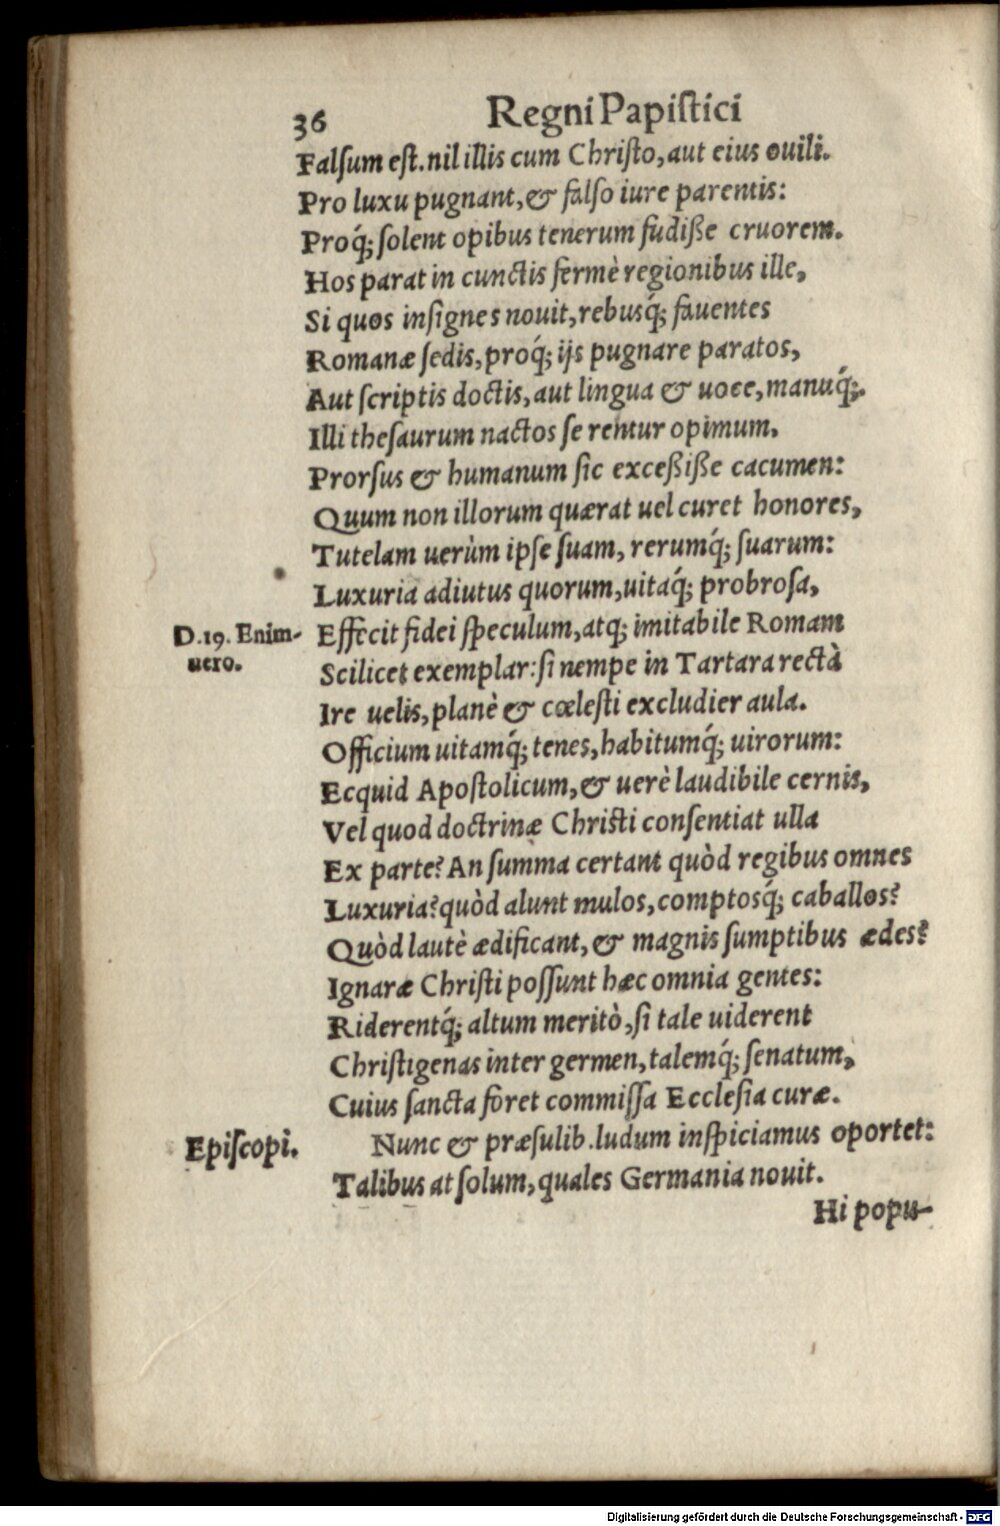 36 Regni Papiſtici
Falſum eſt. nil illis cum Chriſto, aut eius ouili.
Pro luxu pugnant, & falſo iure parentis:
Proq́; ſolent opibus tenerum fudiße cruorem.
Hos parat in cunctis fermè regionibus ille,
Si quos inſignes nouit, rebusq́; fauentes
Romanæ ſedis, proq́; ijs pugnare paratos,
Aut ſcriptis doctis, aut lingua & uoce, manuq́;.
Illi theſaurum nactos ſe rentur opimum.
Prorſus & humanum ſic exceßiße cacumen:
Quum non illorum quærat uel curet honores,
Tutelam uerùm ipſe ſuam, rerumq́; ſuarum:
Luxuria adiutus quorum, uitaq́; probroſa,
D. 19. Enim-
uero.
Effecit fidei ſpeculum, atq; imitabile Romam
Scilicet exemplar: ſi nempe in Tartara rectà
Ire uelis, planè & cœleſti excludier aula.
Officium uitamq́; tenes, habitumq́; uirorum:
Ecquid Apoſtolicum, & uerè laudibile cernis,
Vel quod doctrinæ Chriſti conſentiat ulla
Ex parte? An ſumma certant quòd regibus omnes
Luxuria? quòd alunt mulos, comptosq́; caballos?
Quòd lautè ædificant, & magnis ſumptibus ædes?
Ignaræ Chriſti poſſunt hæc omnia gentes:
Riderentq́; altum meritò, ſi tale uiderent
Chriſtigenas inter germen, talemq́; ſenatum,
Cuius ſancta foret commiſſa Eccleſia curæ.
Epiſcopi.
Nunc & præſulib. ludum inſpiciamus oportet:
Talibus at ſolum, quales Germania nouit.
Hi popu-
Digitalisierung gefördert durch die Deutsche Forschungsgemeinschaft - DFG